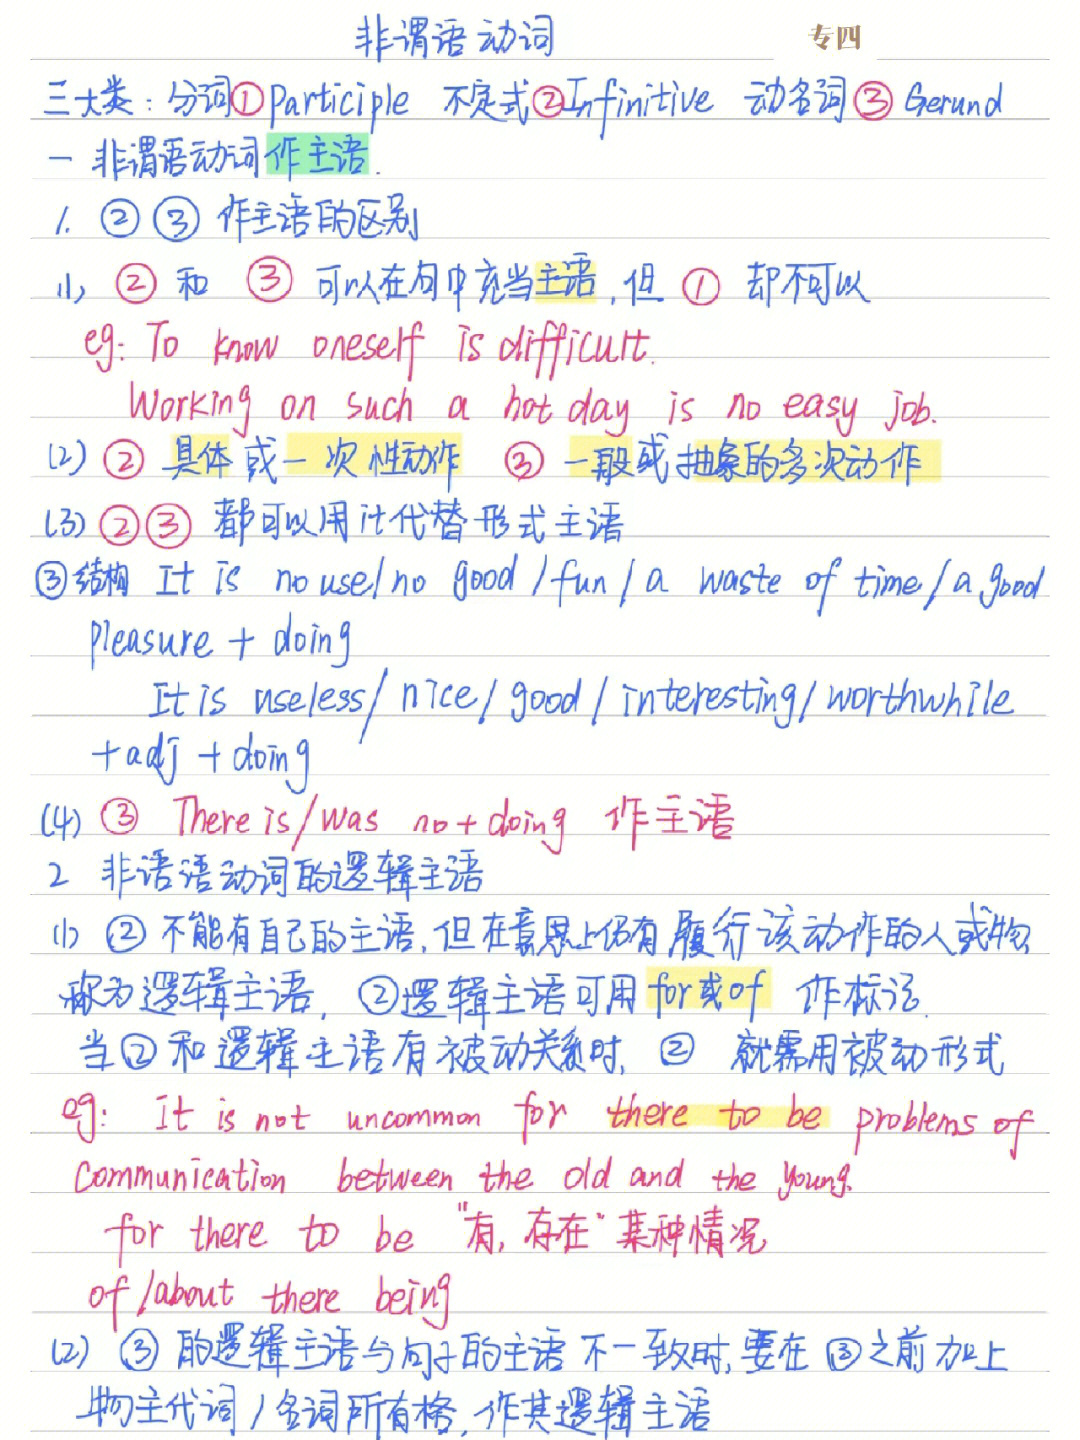 非谓语动词 专四
三大类：分词①Participle 不定式②Infinitive 动名词③Gerund
一 非谓语动词作主语.
1. ②③作主语的区别
(1) ② 和 ③ 可以在句中充当主语,但 ① 却不可以
eg: To know oneself is difficult.
Working on such a hot day is no easy job.
(2) ② 具体或一次性动作 ③ 一般或抽象的多次动作
(3) ②③ 都可以用it代替形式主语
③结构 It is no use/no good/fun/a waste of time/a good
pleasure + doing
It is useless/nice/good/interesting/worthwhile
+adj + doing
(4) ③ There is/was no+doing 作主语
2 非语语动词的逻辑主语
(1) ② 不能有自己的主语,但在意思上仍有履行该动作的人或物
称为逻辑主语, ②逻辑主语可用for或of 作标志.
当②和逻辑主语有被动关系时, ② 就需用被动形式
eg: It is not uncommon for there to be problems of
communication between the old and the young.
for there to be "有,存在"某种情况
of/about there being
(2) ③ 的逻辑主语与句子的主语不一致时,要在③之前加上
物主代词/名词所有格,作其逻辑主语